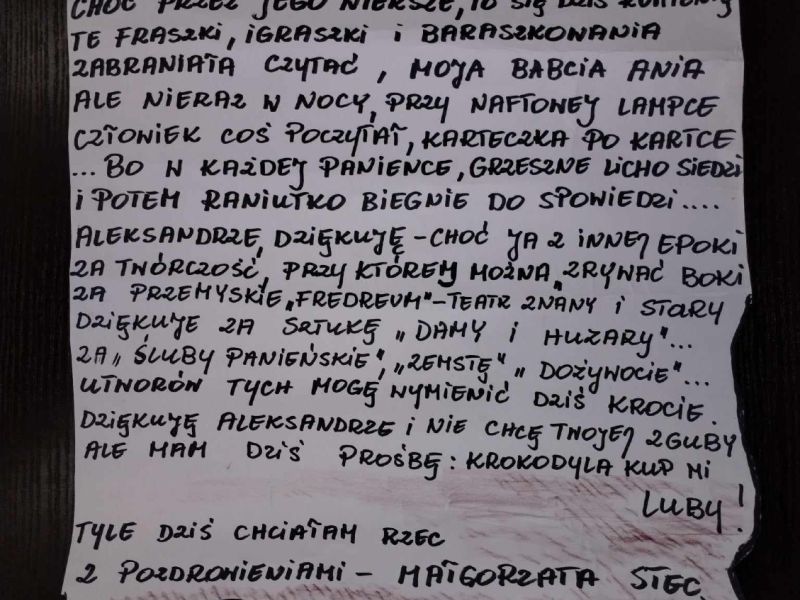 CHOĆ PRZEZ JEGO WIERSZE, TO SIĘ DZIŚ
TE FRASZKI, IGRASZKI I BARASZKOWANIA
ZABRANIAŁA CZYTAĆ, MOJA BABCIA ANIA
ALE NIERAZ W NOCY, PRZY NAFTOWEJ LAMPCE
CZŁOWIEK COŚ POCZYTAŁ, KARTECZKA PO KARTCE
... BO W KAŻDEJ PANIENCE, GRZESZNE LICHO SIEDZI
I POTEM RANIUTKO BIEGNIE DO SPOWIEDZI....
ALEKSANDRZE, DZIĘKUJĘ - CHOĆ JA Z INNEJ EPOKI
ZA TWÓRCZOŚĆ, PRZY KTÓREJ MOŻNA ZRYWAĆ BOKI
ZA PRZEMYSKIE „FREDREUM" - TEATR ZNANY I STARY
DZIĘKUJE ZA SZTUKĘ „DAMY I HUZARY"...
ZA „ŚLUBY PANIEŃSKIE", „ZEMSTĘ" „DOŻYWOCIE"...
UTWORÓW TYCH MOGĘ WYMIENIĆ DZIŚ KROCIE.
DZIĘKUJĘ ALEKSANDRZE I NIE CHCĘ TWOJEJ ZGUBY
ALE MAM DZIŚ PROŚBĘ: KROKODYLA KUP MI
LUBY!
TYLE DZIŚ CHCIAŁAM RZEC
Z POZDROWIENIAMI - MAŁGORZATA STEC